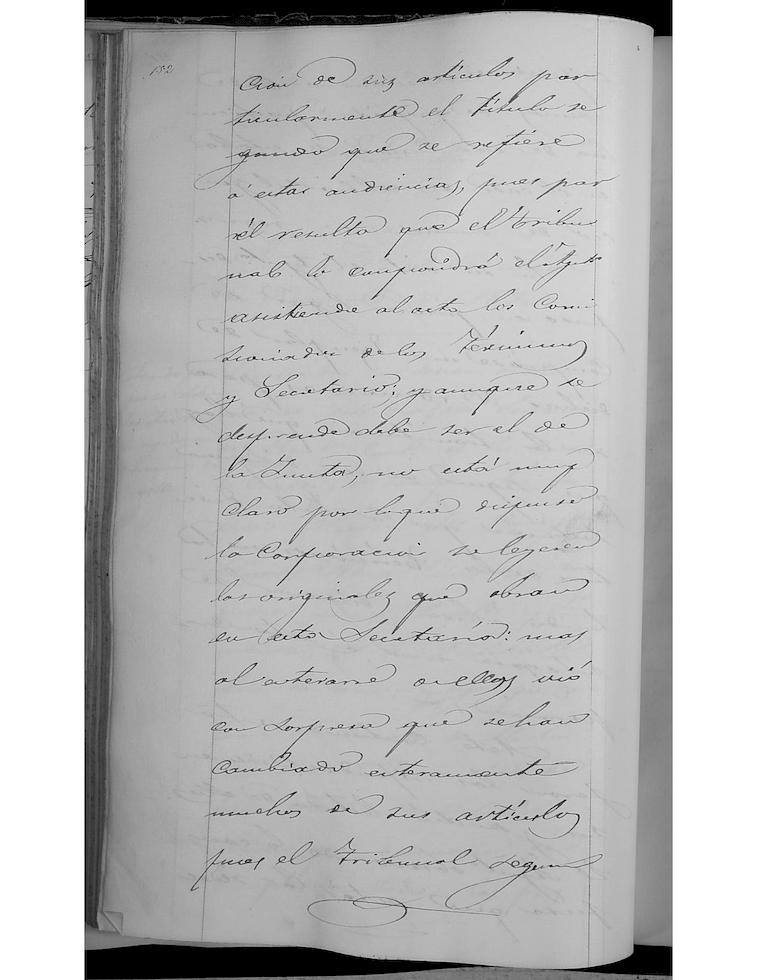 152
cion de sus artículos par
ticularmente el título se
gundo que se refiere
á estas audiencias, pues por
él resulta que el tribu
nal lo compondrá el
asistiendo al acto los Comi
sionados de los Términos
y Secretario; y aunque se
desprende debe ser el de
la Junta, no está muy
claro por lo que dispuso
la Corporacion se leyesen
los originales que obran
en esta Secretaría: mas
al enterarse de ellos vió
con sorpresa que se han
cambiado enteramente
muchos de sus artículos
pues el Tribunal segun